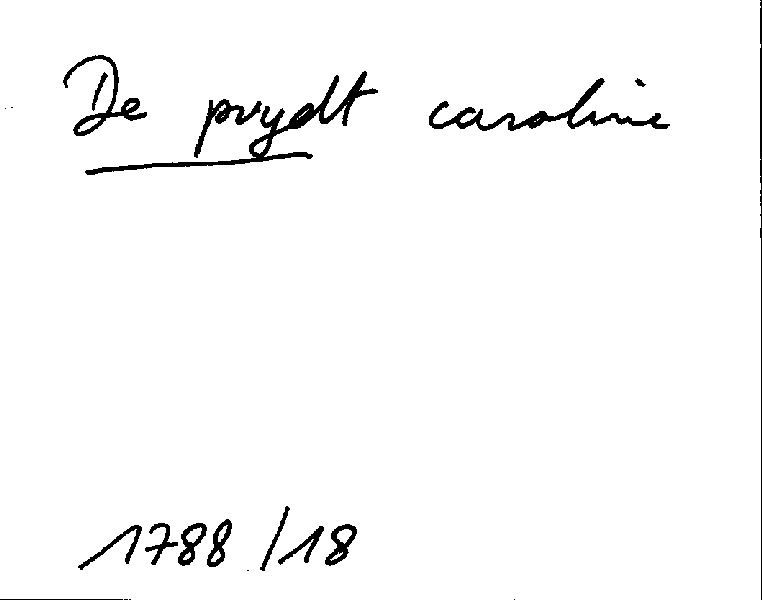 De puydt caroline
1788/18